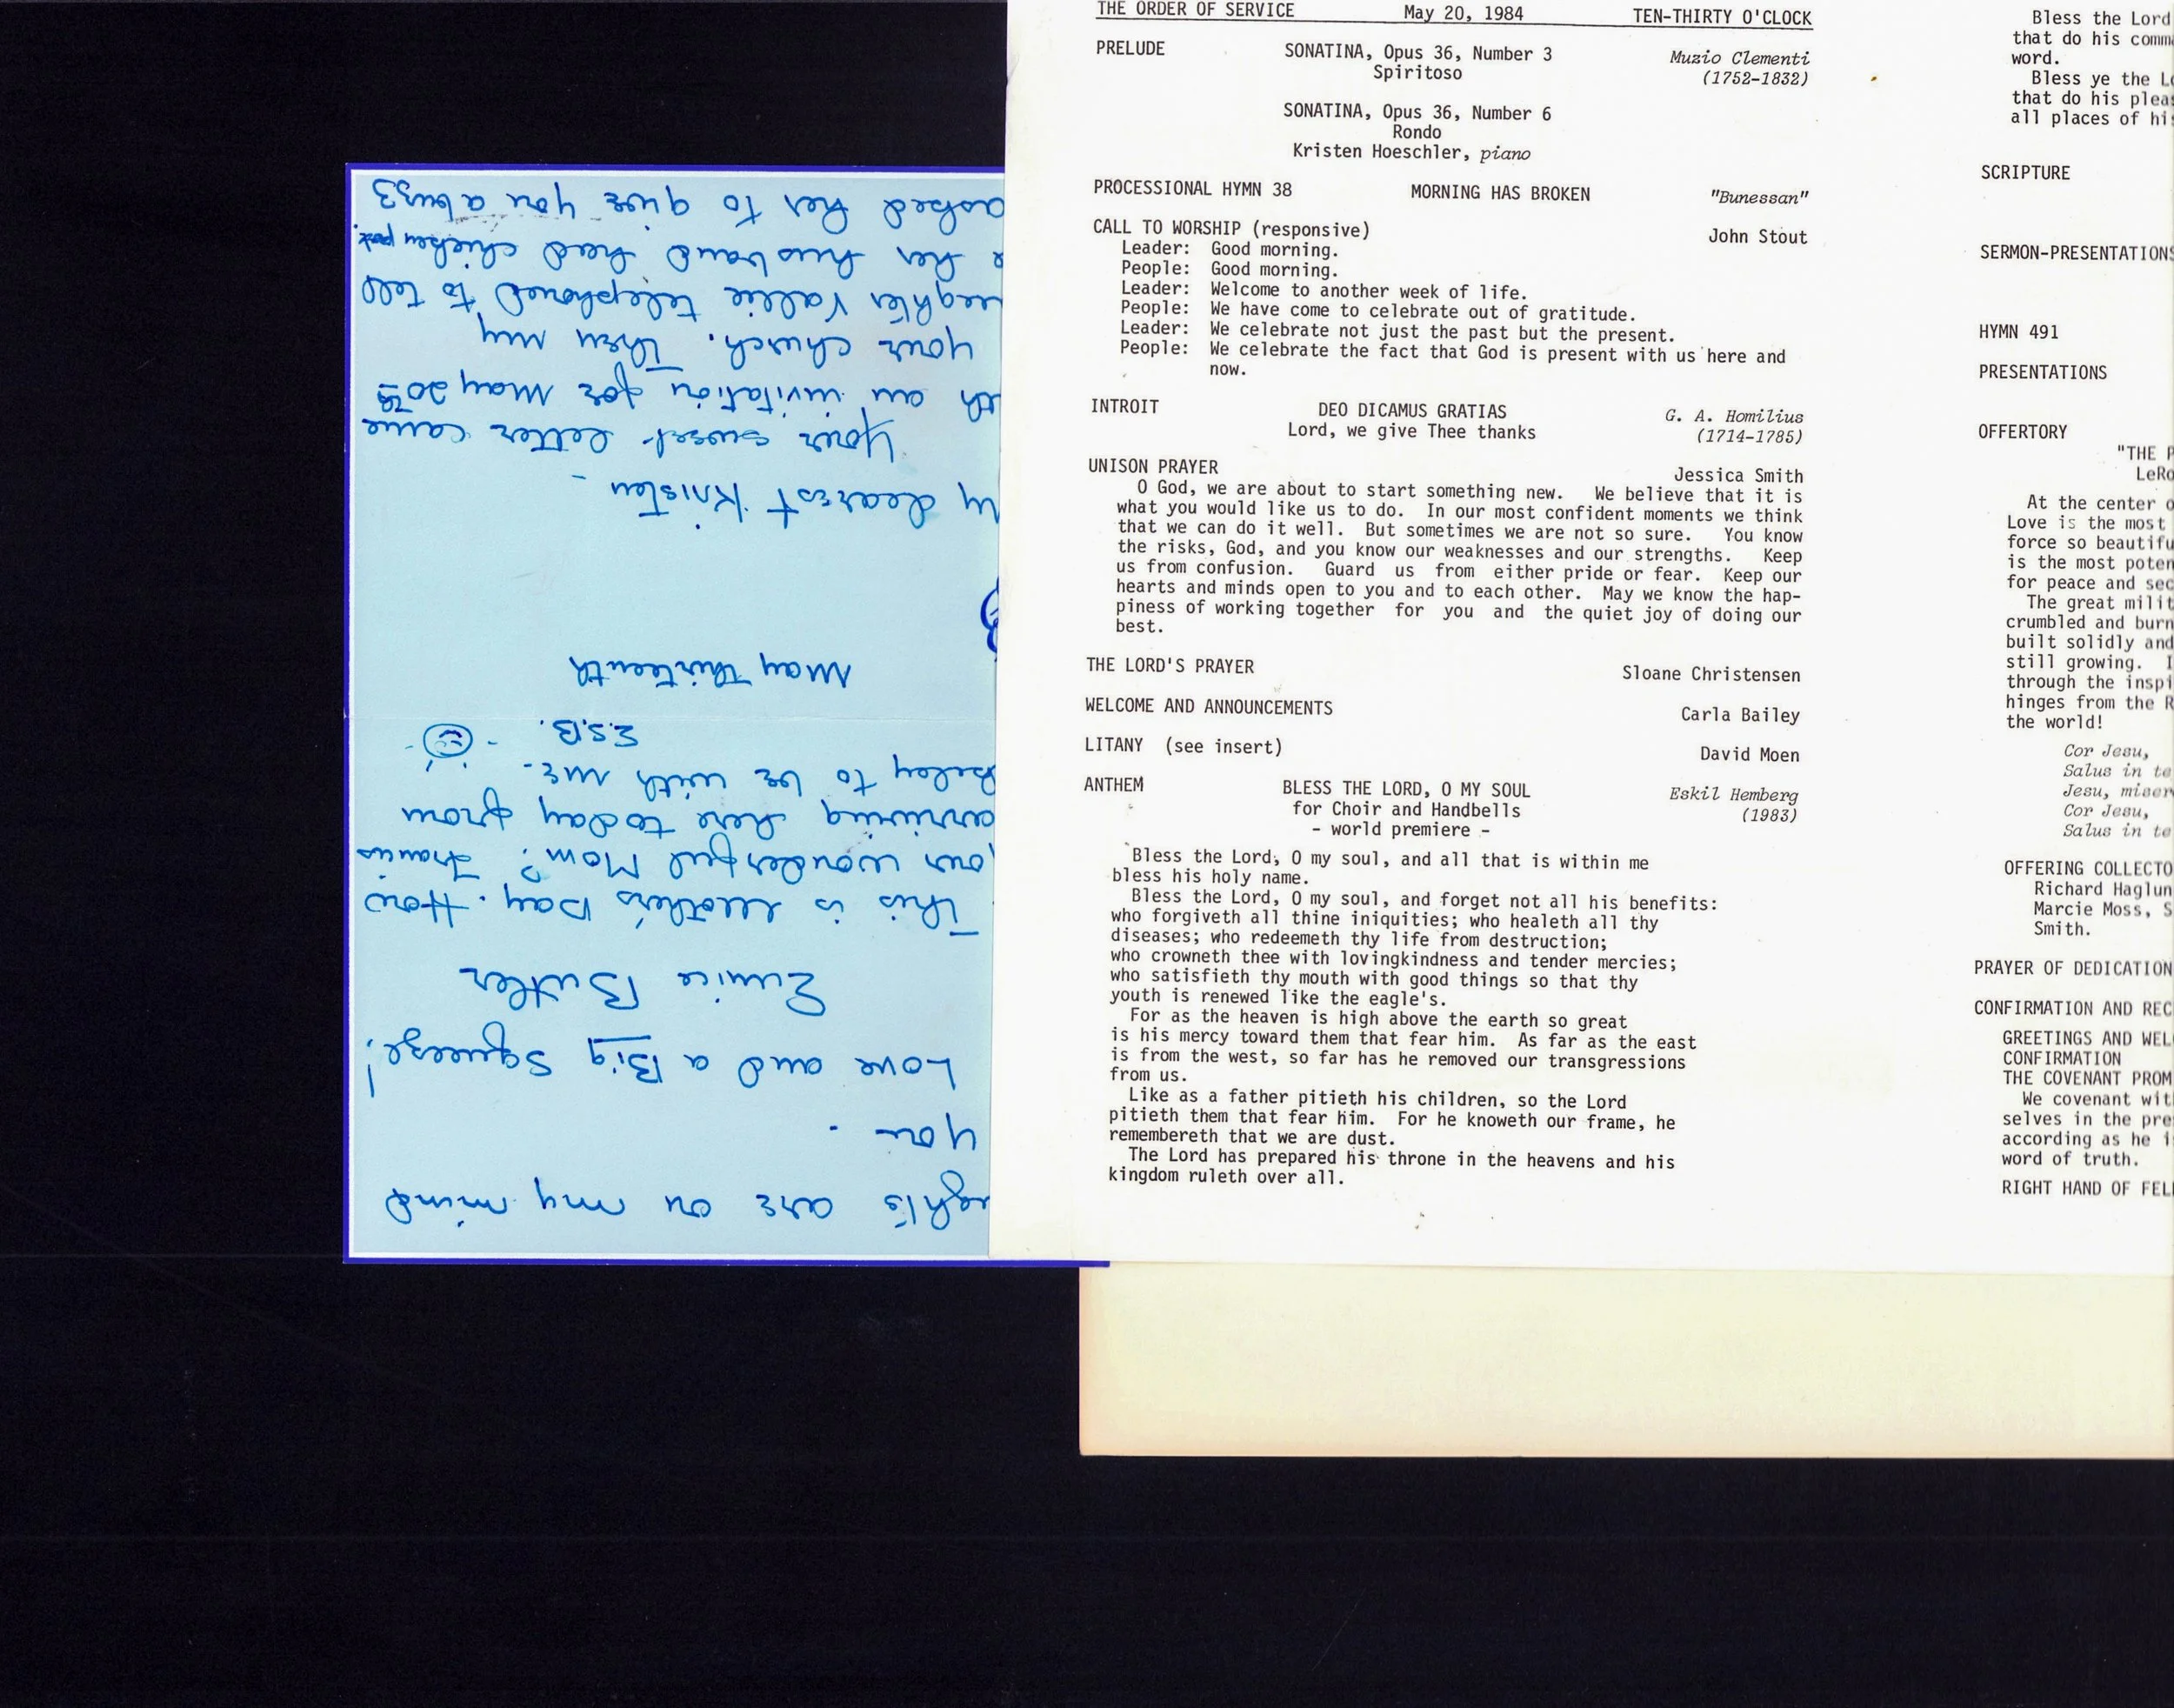 THE ORDER OF SERVICE May 20, 1984 TEN-THIRTY O'CLOCK
PRELUDE SONATINA, Opus 36, Number 3 Muzio Clementi
Spiritoso (1752-1832)
SONATINA, Opus 36, Number 6
Rondo
Kristen Hoeschler, piano
PROCESSIONAL HYMN 38 MORNING HAS BROKEN "Bunessan"
CALL TO WORSHIP (responsive) John Stout
Leader: Good morning.
People: Good morning.
Leader: Welcome to another week of life.
People: We have come to celebrate out of gratitude.
Leader: We celebrate not just the past but the present.
People: We celebrate the fact that God is present with us here and
now.
INTROIT DEO DICAMUS GRATIAS G. A. Homilius
Lord, we give Thee thanks (1714-1785)
UNISON PRAYER Jessica Smith
O God, we are about to start something new. We believe that it is
what you would like us to do. In our most confident moments we think
that we can do it well. But sometimes we are not so sure. You know
the risks, God, and you know our weaknesses and our strengths. Keep
us from confusion. Guard us from either pride or fear. Keep our
hearts and minds open to you and to each other. May we know the hap-
piness of working together for you and the quiet joy of doing our
best.
THE LORD'S PRAYER Sloane Christensen
WELCOME AND ANNOUNCEMENTS Carla Bailey
LITANY (see insert) David Moen
ANTHEM BLESS THE LORD, O MY SOUL Eskil Hemberg
for Choir and Handbells (1983)
- world premiere -
Bless the Lord, O my soul, and all that is within me
bless his holy name.
Bless the Lord, O my soul, and forget not all his benefits:
who forgiveth all thine iniquities; who healeth all thy
diseases; who redeemeth thy life from destruction;
who crowneth thee with lovingkindness and tender mercies;
who satisfieth thy mouth with good things so that thy
youth is renewed like the eagle's.
For as the heaven is high above the earth so great
is his mercy toward them that fear him. As far as the east
is from the west, so far has he removed our transgressions
from us.
Like as a father pitieth his children, so the Lord
pitieth them that fear him. For he knoweth our frame, he
remembereth that we are dust.
The Lord has prepared his throne in the heavens and his
kingdom ruleth over all.
Bless the Lord
that do his comm
word.
Bless ye the L
that do his plea
all places of hi
SCRIPTURE
SERMON-PRESENTATIONS
HYMN 491
PRESENTATIONS
OFFERTORY
"THE P
LeRo
At the center o
Love is the most
force so beautifu
is the most poten
for peace and sec
The great milit
crumbled and burn
built solidly and
still growing. I
through the inspi
hinges from the R
the world!
Cor Jesu,
Salus in te
Jesu, miser
Cor Jesu,
Salus in te
OFFERING COLLECTO
Richard Haglun
Marcie Moss, S
Smith.
PRAYER OF DEDICATION
CONFIRMATION AND REC
GREETINGS AND WEL
CONFIRMATION
THE COVENANT PROM
We covenant wit
selves in the pre
according as he i
word of truth.
RIGHT HAND OF FEL
ughts are on my mind
you.
Love and a Big Squeeze!
Eunice Butler
This is Mother's Day. How
our wonderful Mom? Francis
arriving here today from
to be with me.
E.S.B.
May Thirteenth
y dearest Kristen -
Your sweet letter came
th an invitation for May 20th
your church. Then my
ughter Vallie telephoned to tell
e her husband had chicken pox.
asked her to give you a buzz